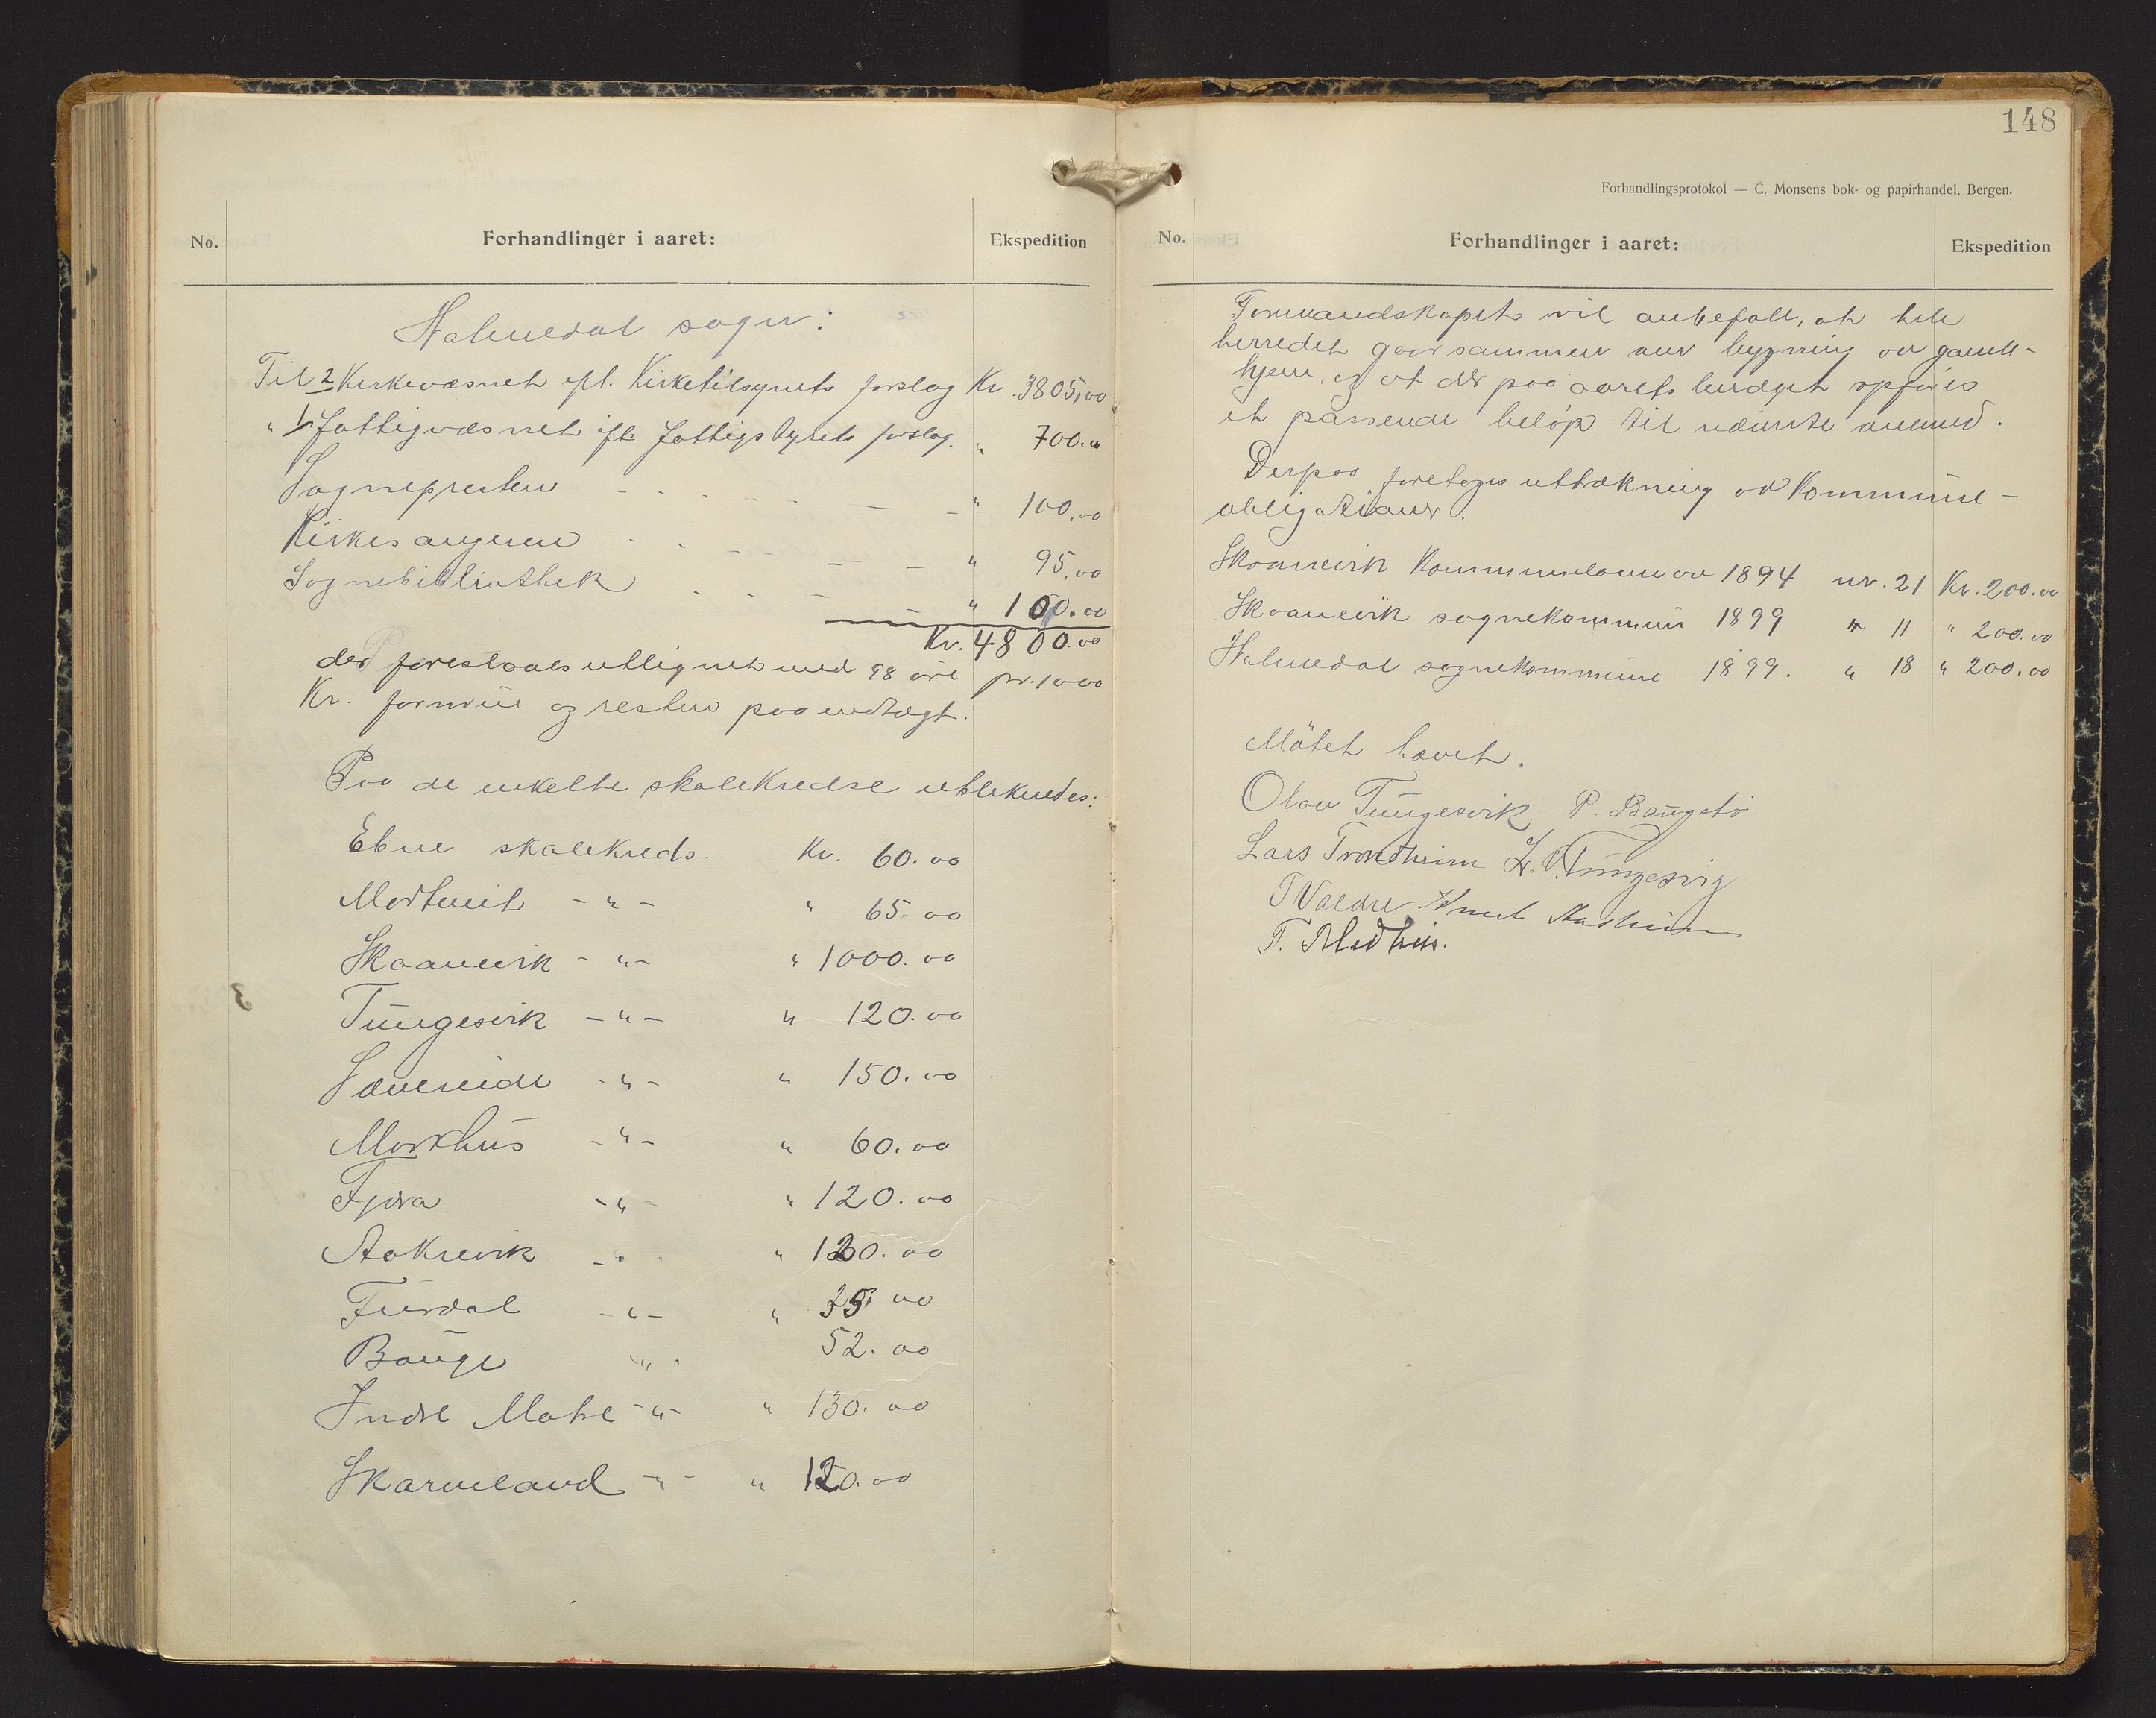 No. Forhandlinger i aaret: Ekspedition
Holmedal sogn:
Til 2 Kirkevæsnet eft. Kirketilsynets forslag Kr. 3805,00
" 1 Fattigvæsnet eft. fattigstyrets forslag. " 700.00
Sognepresten " 100.00
Kirkesangeren " 95.00
Sognebibliothek " 100.00
Kr. 4800.00
der foreslaaes utlignet med 98 øre pr. 1000
Kr. formue og resten paa indtægt.
Paa de enkelte skolekredse utliknedes:
Ebne skolekreds. Kr. 60.00
Mortveit - " - " 65.00
Skaanevik - " - " 1000.00
Tungesvik - " - " 120.00
Sævereide - " - " 150.00
Markhus - " - " 60.00
Fjæra - " - " 120.00
Aakrevik - " 120.00
Furdal - " - " 35.00
Bauge " 52.00
Indre Matre - " - " 130.00
Skarveland - " - " 120.00
148
Forhandlingsprotokol — C. Monsens bok- og papirhandel, Bergen.
No. Forhandlinger i aaret: Ekspedition
Formandskapet vil anbefale, at hele
herredet gaar sammen om bygning av gamle-
hjem, og at der paa aarets budget opføres
et passende beløp til nævnte øiemed.
Derpaa foretages uttrækning av Kommune-
obligationer.
Skaanevik Kommunelaan av 1894 nr. 21 Kr. 200.00
Skaanevik sognekommune 1899 " 11 " 200.00
Holmedal sognekommune 1899. " 18 " 200.00
Møtet hævet.
Olav Tungesvik P. Baugstø
Lars Trondheim L. O. Tungesvig
T Valdre Knut Aasheim
T. Medhus.